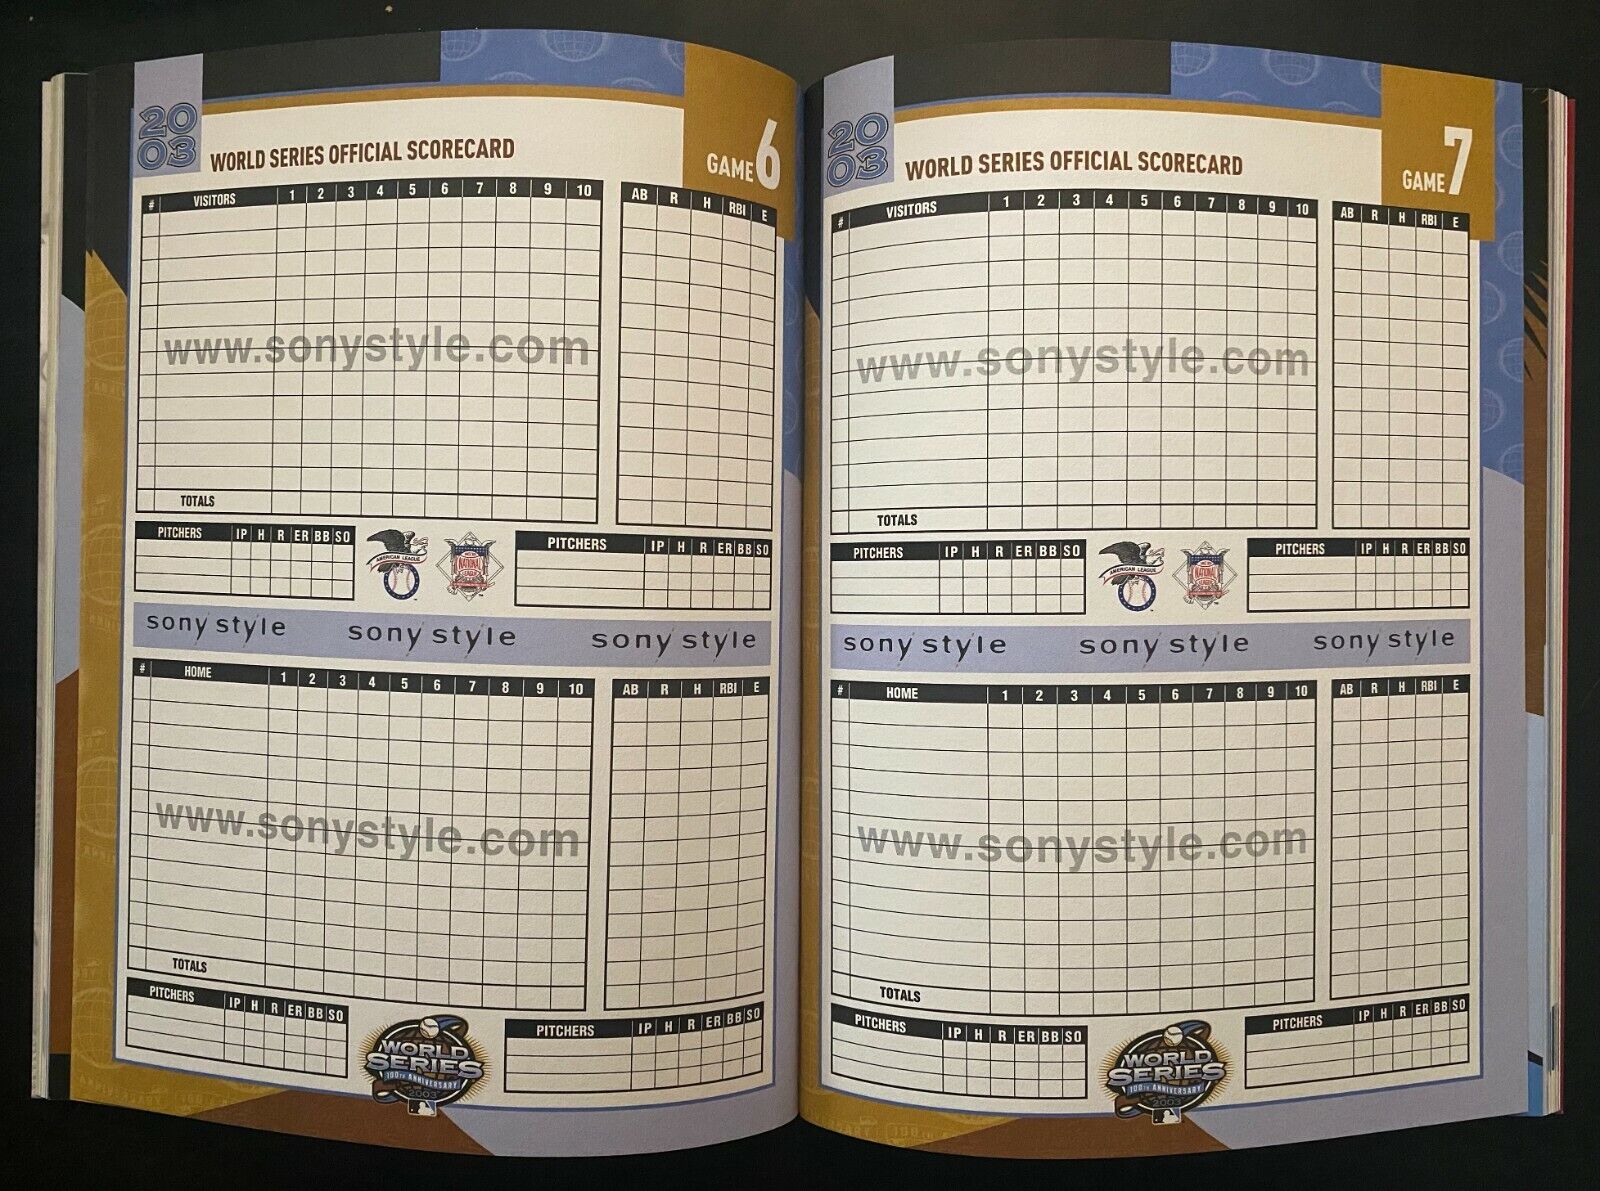 20
03
WORLD SERIES OFFICIAL SCORECARD
GAME 6
# VISITORS 1 2 3 4 5 6 7 8 9 10
AB R H RBI E
www.sonystyle.com
TOTALS
PITCHERS IP H R ER BB SO
AMERICAN LEAGUE
NATIONAL
LEAGUE
PITCHERS IP H R ER BB SO
sony style sony style sony style
# HOME 1 2 3 4 5 6 7 8 9 10
AB R H RBI E
www.sonystyle.com
TOTALS
PITCHERS IP H R ER BB SO
WORLD
SERIES
100TH ANNIVERSARY
2003
PITCHERS IP H R ER BB SO
20
03
WORLD SERIES OFFICIAL SCORECARD
GAME 7
# VISITORS 1 2 3 4 5 6 7 8 9 10
AB R H RBI E
www.sonystyle.com
TOTALS
PITCHERS IP H R ER BB SO
AMERICAN LEAGUE
NATIONAL
LEAGUE
PITCHERS IP H R ER BB SO
sony style sony style sony style
# HOME 1 2 3 4 5 6 7 8 9 10
AB R H RBI E
www.sonystyle.com
TOTALS
PITCHERS IP H R ER BB SO
WORLD
SERIES
100TH ANNIVERSARY
2003
PITCHERS IP H R ER BB SO